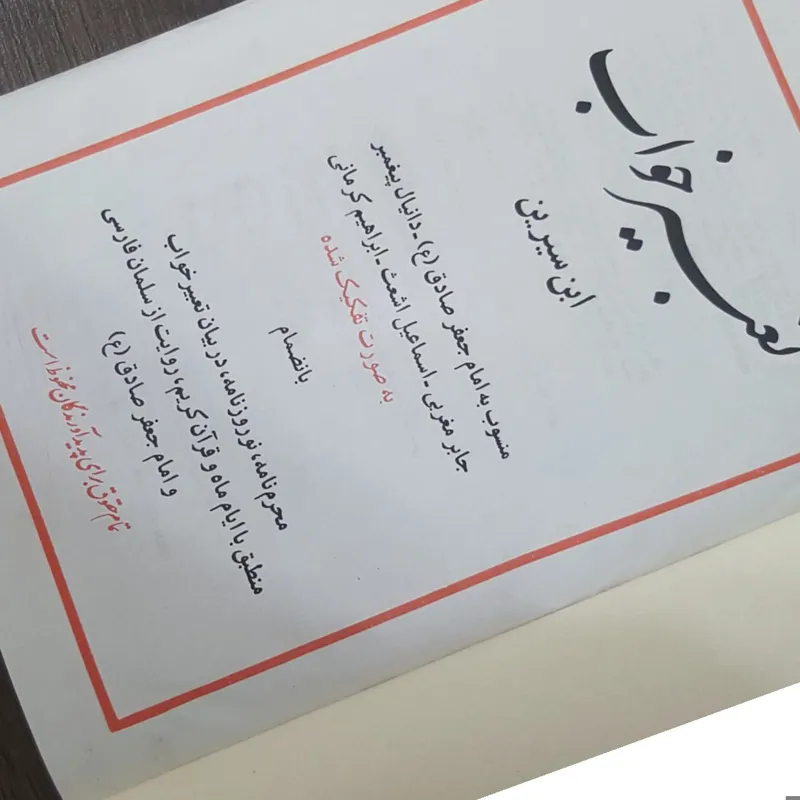 تعبیر خواب
ابن سیرین
منسوب به امام جعفر صادق (ع) - دانیال پیغمبر
جابر مغربی - اسماعیل اشعث - ابراهیم کرمانی
به صورت تفکیک شده
بانضمام
محرم نامه، نوروزنامه، در بیان تعبیر خواب
منطبق با ایام ماه و قرآن کریم، روایت از سلمان فارسی
و امام جعفر صادق (ع)
تمام حقوق برای پدیدآورندگان محفوظ است